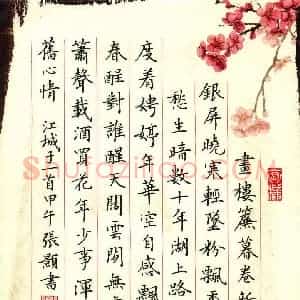 畫樓簾幕卷新
銀屏曉寒輕墜粉飄香
愁生暗數十年湖上路
度着娉婷年華空自感飄
春酲對誰醒天闊雲閒無
簫聲載酒買花年少事渾
舊心情 江城子一首甲午張顥書